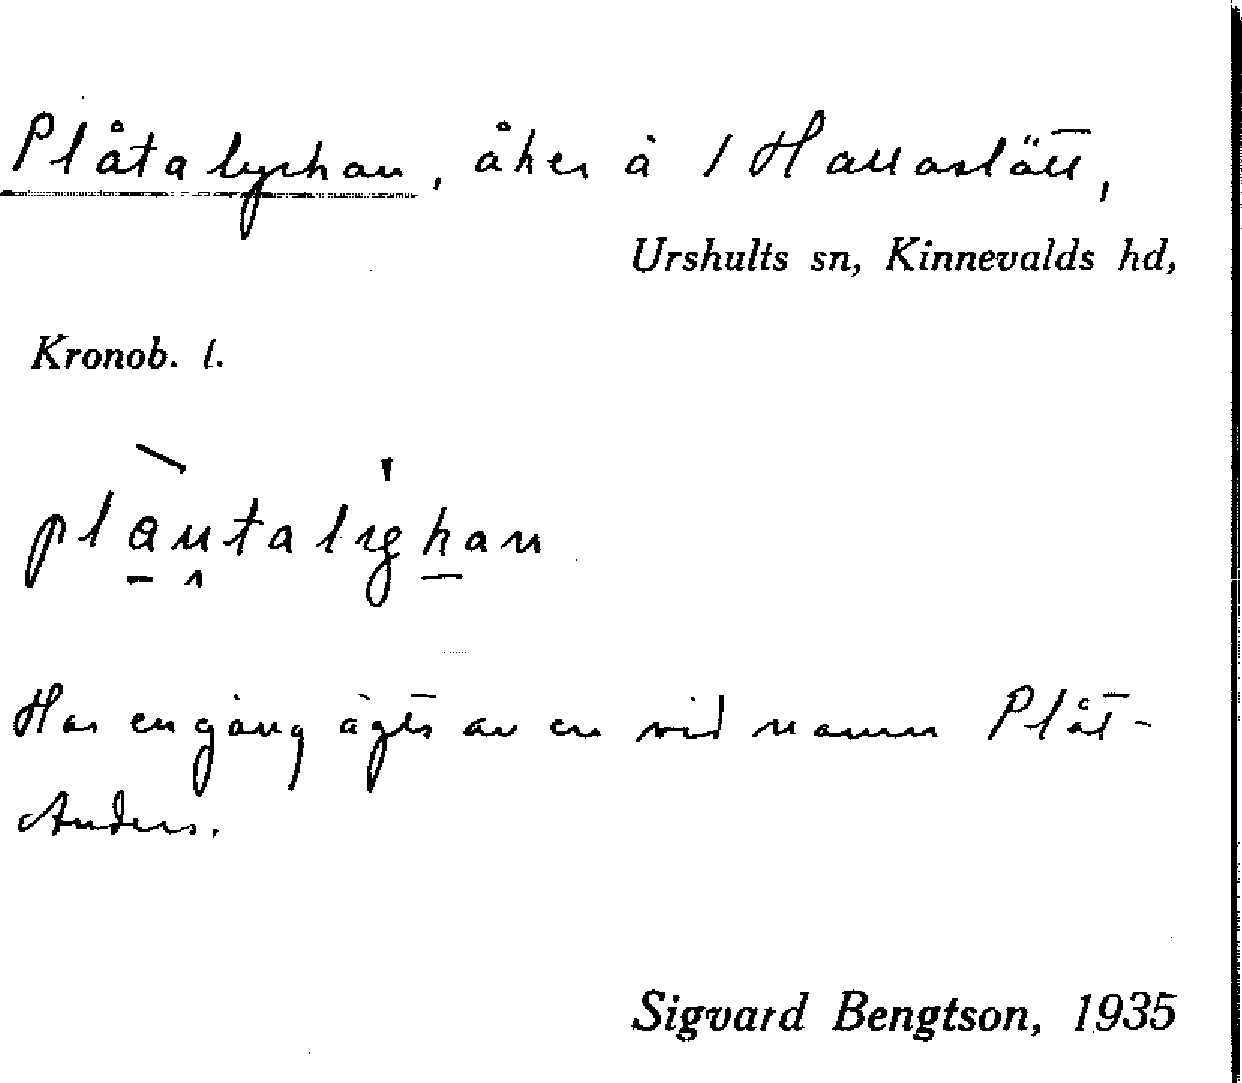 Plåtalyckan, åker å 1 Hallaslätt,
Urshults sn, Kinnevalds hd,
Kronob. l.
Har en gång ägts av en vid namn Plåt-
Anders.
Sigvard Bengtson, 1935